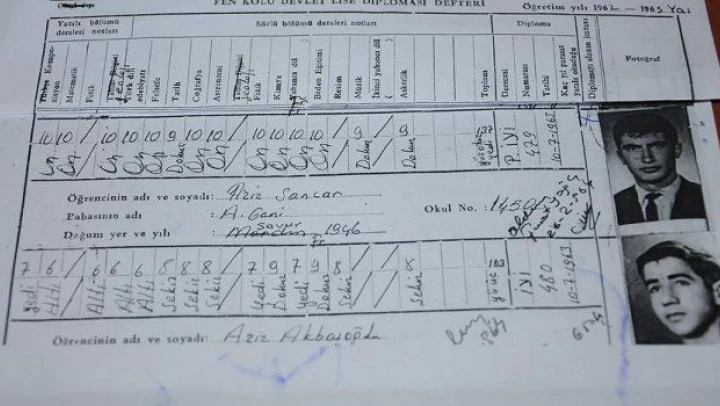 FEN KOLU DEVLET LİSE DİPLOMASI DEFTERİ
Öğretim yılı 1962 - 1963 Yaz
Yazılı bölümü dersleri notları
Sözlü bölümü dersleri notları
Diploma
Türkçe Kompozisyon
Matematik
Fizik
Türk dili edebiyatı
Felsefe
Tarih
Coğrafya
Astronomi
Fizik
Kimya
Yabancı dil
Beden Eğitimi
Resim
Müzik
İkinci yabancı dil
Askerlik
Toplam
Derecesi
Numarası
Tarihi
Kaç yıl parasız yatılı okuduğu
Diplomayı alanın imzası
Fotoğraf
10 10 / 10 10 10 9 10 10 / 10 10 10 10 / 9 / 9
On On / On On On Dokuz On On / On On On On / Dokuz / Dokuz
P. İYİ
479
10-7-1963
Öğrencinin adı ve soyadı: Aziz Sancar
Babasının adı : A. Gani
Okul No. : 1450
Doğum yer ve yılı : Savur 1946
7 6 / 6 6 6 8 8 8 / 7 9 7 9 8 / / 8
Yedi Altı / Altı Altı Altı Sekiz Sekiz Sekiz / Yedi Dokuz Yedi Dokuz Sekiz / / Sekiz
İYİ
480
10-7-1963
Öğrencinin adı ve soyadı: Aziz Akbaşoğlu